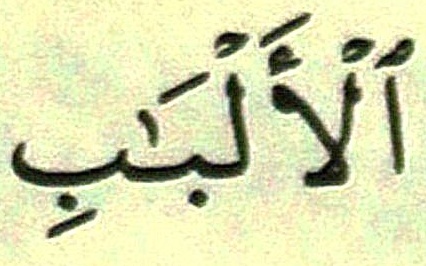 ٱلْأَلْبَـٰبِ